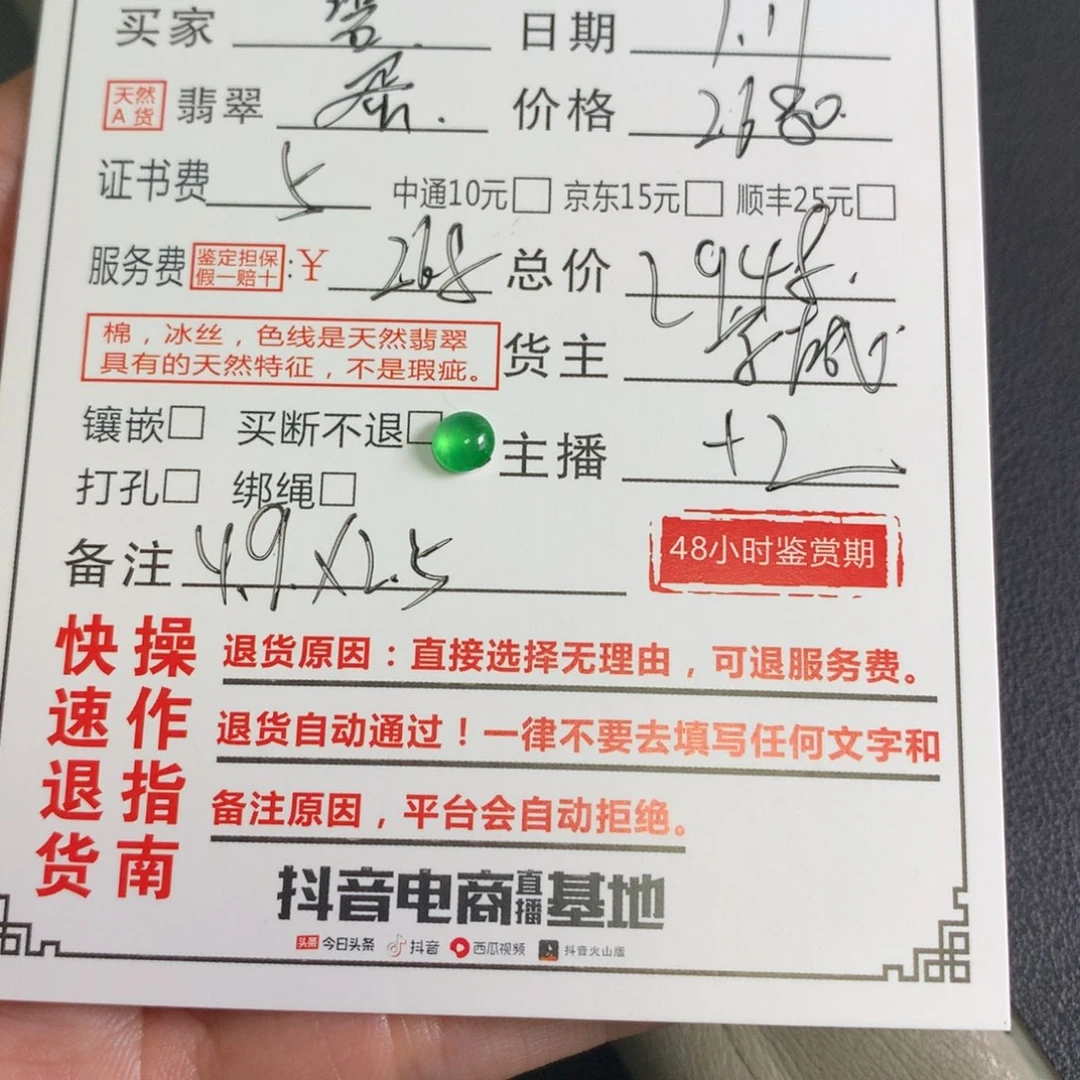 买家 日期 1.11
天然A货 翡翠 蛋. 价格 2680.
证书费 5 中通10元□ 京东15元□ 顺丰25元□
服务费 鉴定担保 假一赔十 :¥ 268 总价 2948.
棉，冰丝，色线是天然翡翠
具有的天然特征，不是瑕疵。
货主
镶嵌□ 买断不退□ 主播 +2
打孔□ 绑绳□
备注 4.9×2.5
48小时鉴赏期
快速退货 操作指南
退货原因：直接选择无理由，可退服务费。
退货自动通过！一律不要去填写任何文字和
备注原因，平台会自动拒绝。
抖音电商直播基地
头条 今日头条 抖音 西瓜视频 抖音火山版